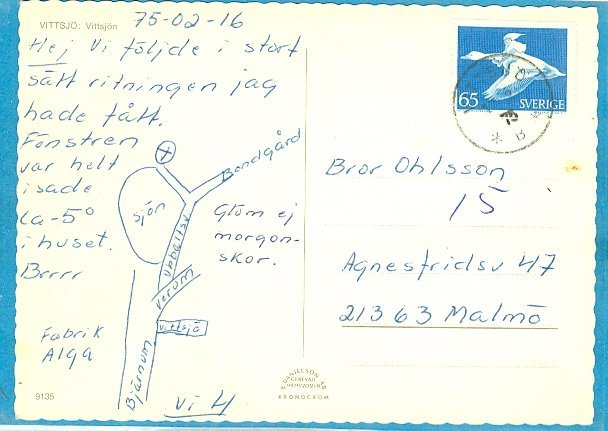 VITTSJÖ: Vittsjön
75-02-16
Hej Vi följde i stort
sätt ritningen jag
hade fått.
Fönstren
var helt
isade
ca -5°
i huset.
Brrrr
Bondgård
sjön
Glöm ej
morgon-
skor.
Verum
Vittsjö
Bjärnum
Fabrik
ALGA
Vi 4
9135
65
SVERIGE
75
B
Bror Ohlsson
15
Agnesfridsv 47
213 63 Malmö
KRONOCROM